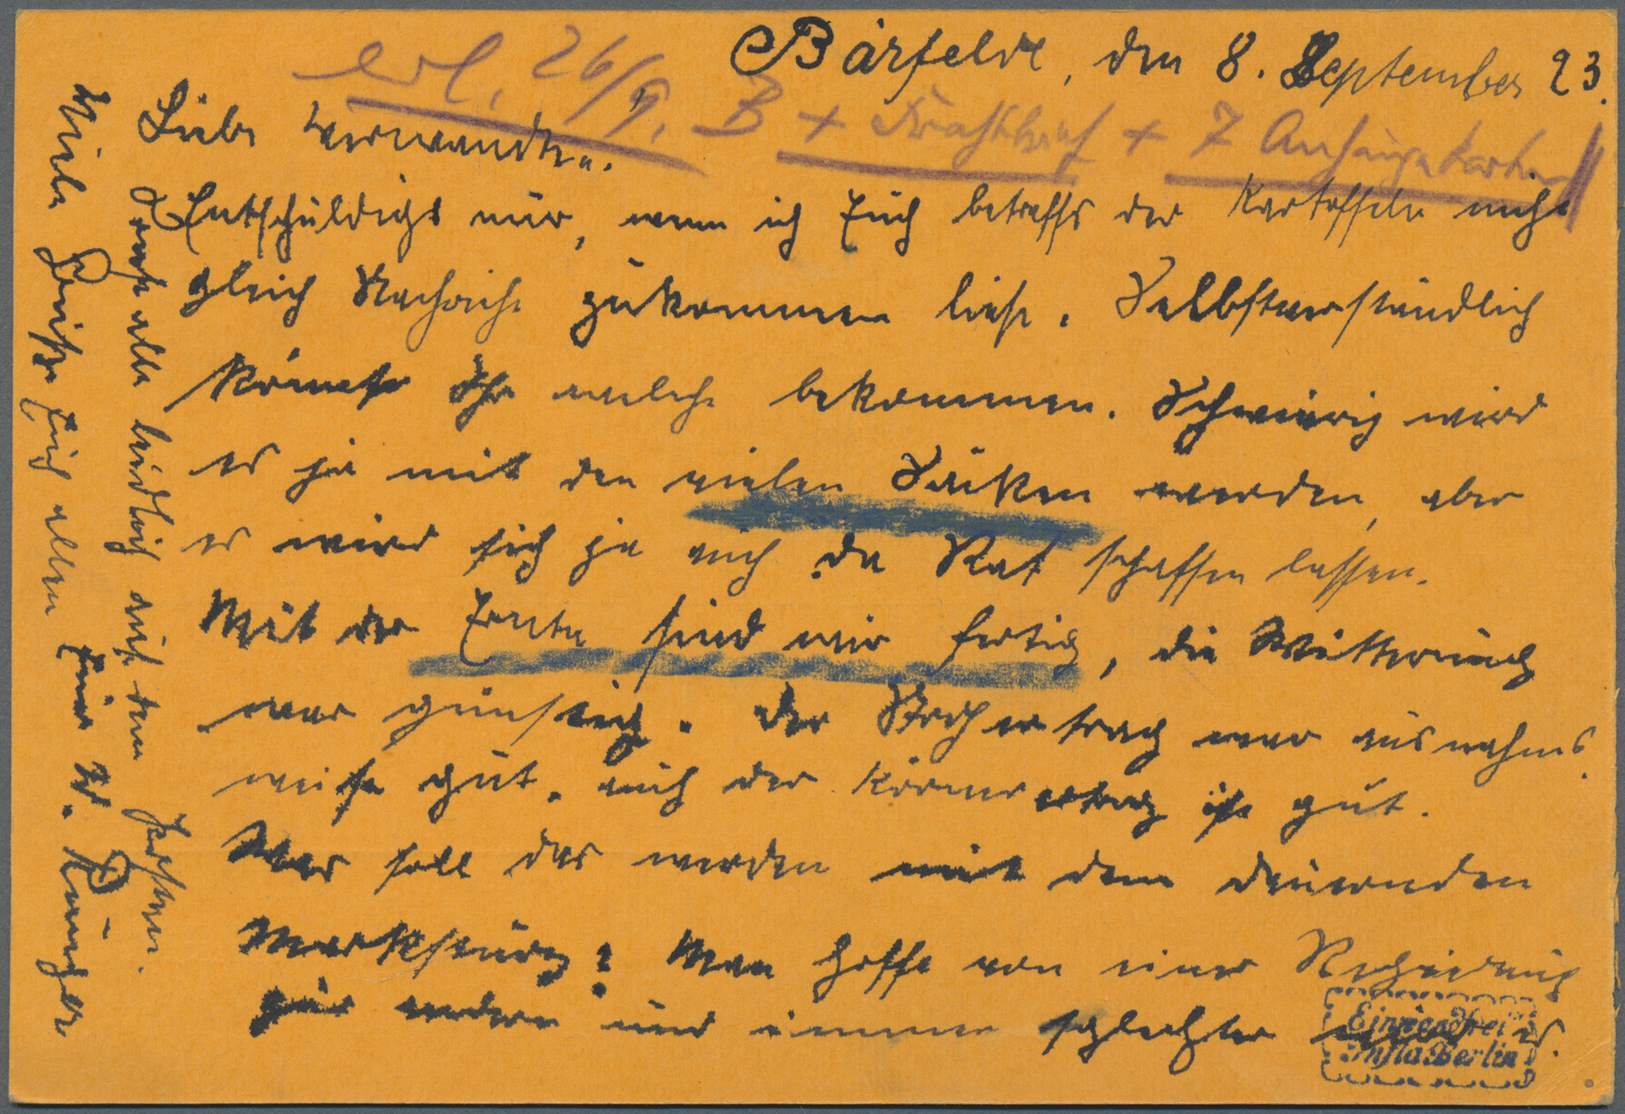 Bärfelde, den 8. September 23.
erl. 26/9. B + Frachtbrief + 7 Anhängekarten
Liebe Verwandten.
Entschuldigt nur, wenn ich Euch betreffs der Kartoffeln nicht
gleich Nachricht zukommen ließ. Selbstverständlich
könnt Ihr welche bekommen. Schwierig wird
es ja mit den vielen Säcken werden, aber
es wird sich ja auch da Rat schaffen lassen.
Mit der Ernte sind wir fertig, die Witterung
war günstig. Der Strohertrag war ausnahms
weise gut, auch der Körnerertrag ist gut.
Was soll das werden mit dem dauernden
Marksturz? Man hofft von einer Regierung
zur andern und immer schlechter wird es.
Sonst alles leidlich auf dem
Viele Grüße Euch allen Euer W. Krüger
Einwandfrei
Infla Berlin